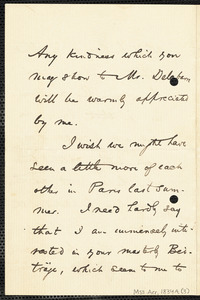 Any kindness which you
may show to Mr. Delabarre
will be warmly appreciated
by me.
I wish we might have
seen a little more of each
other in Paris last sum-
mer. I need hardly say
that I am immensely inte-
rested in your masterly Bei-
träge, which seem to me to
Mss. Acc. 1884